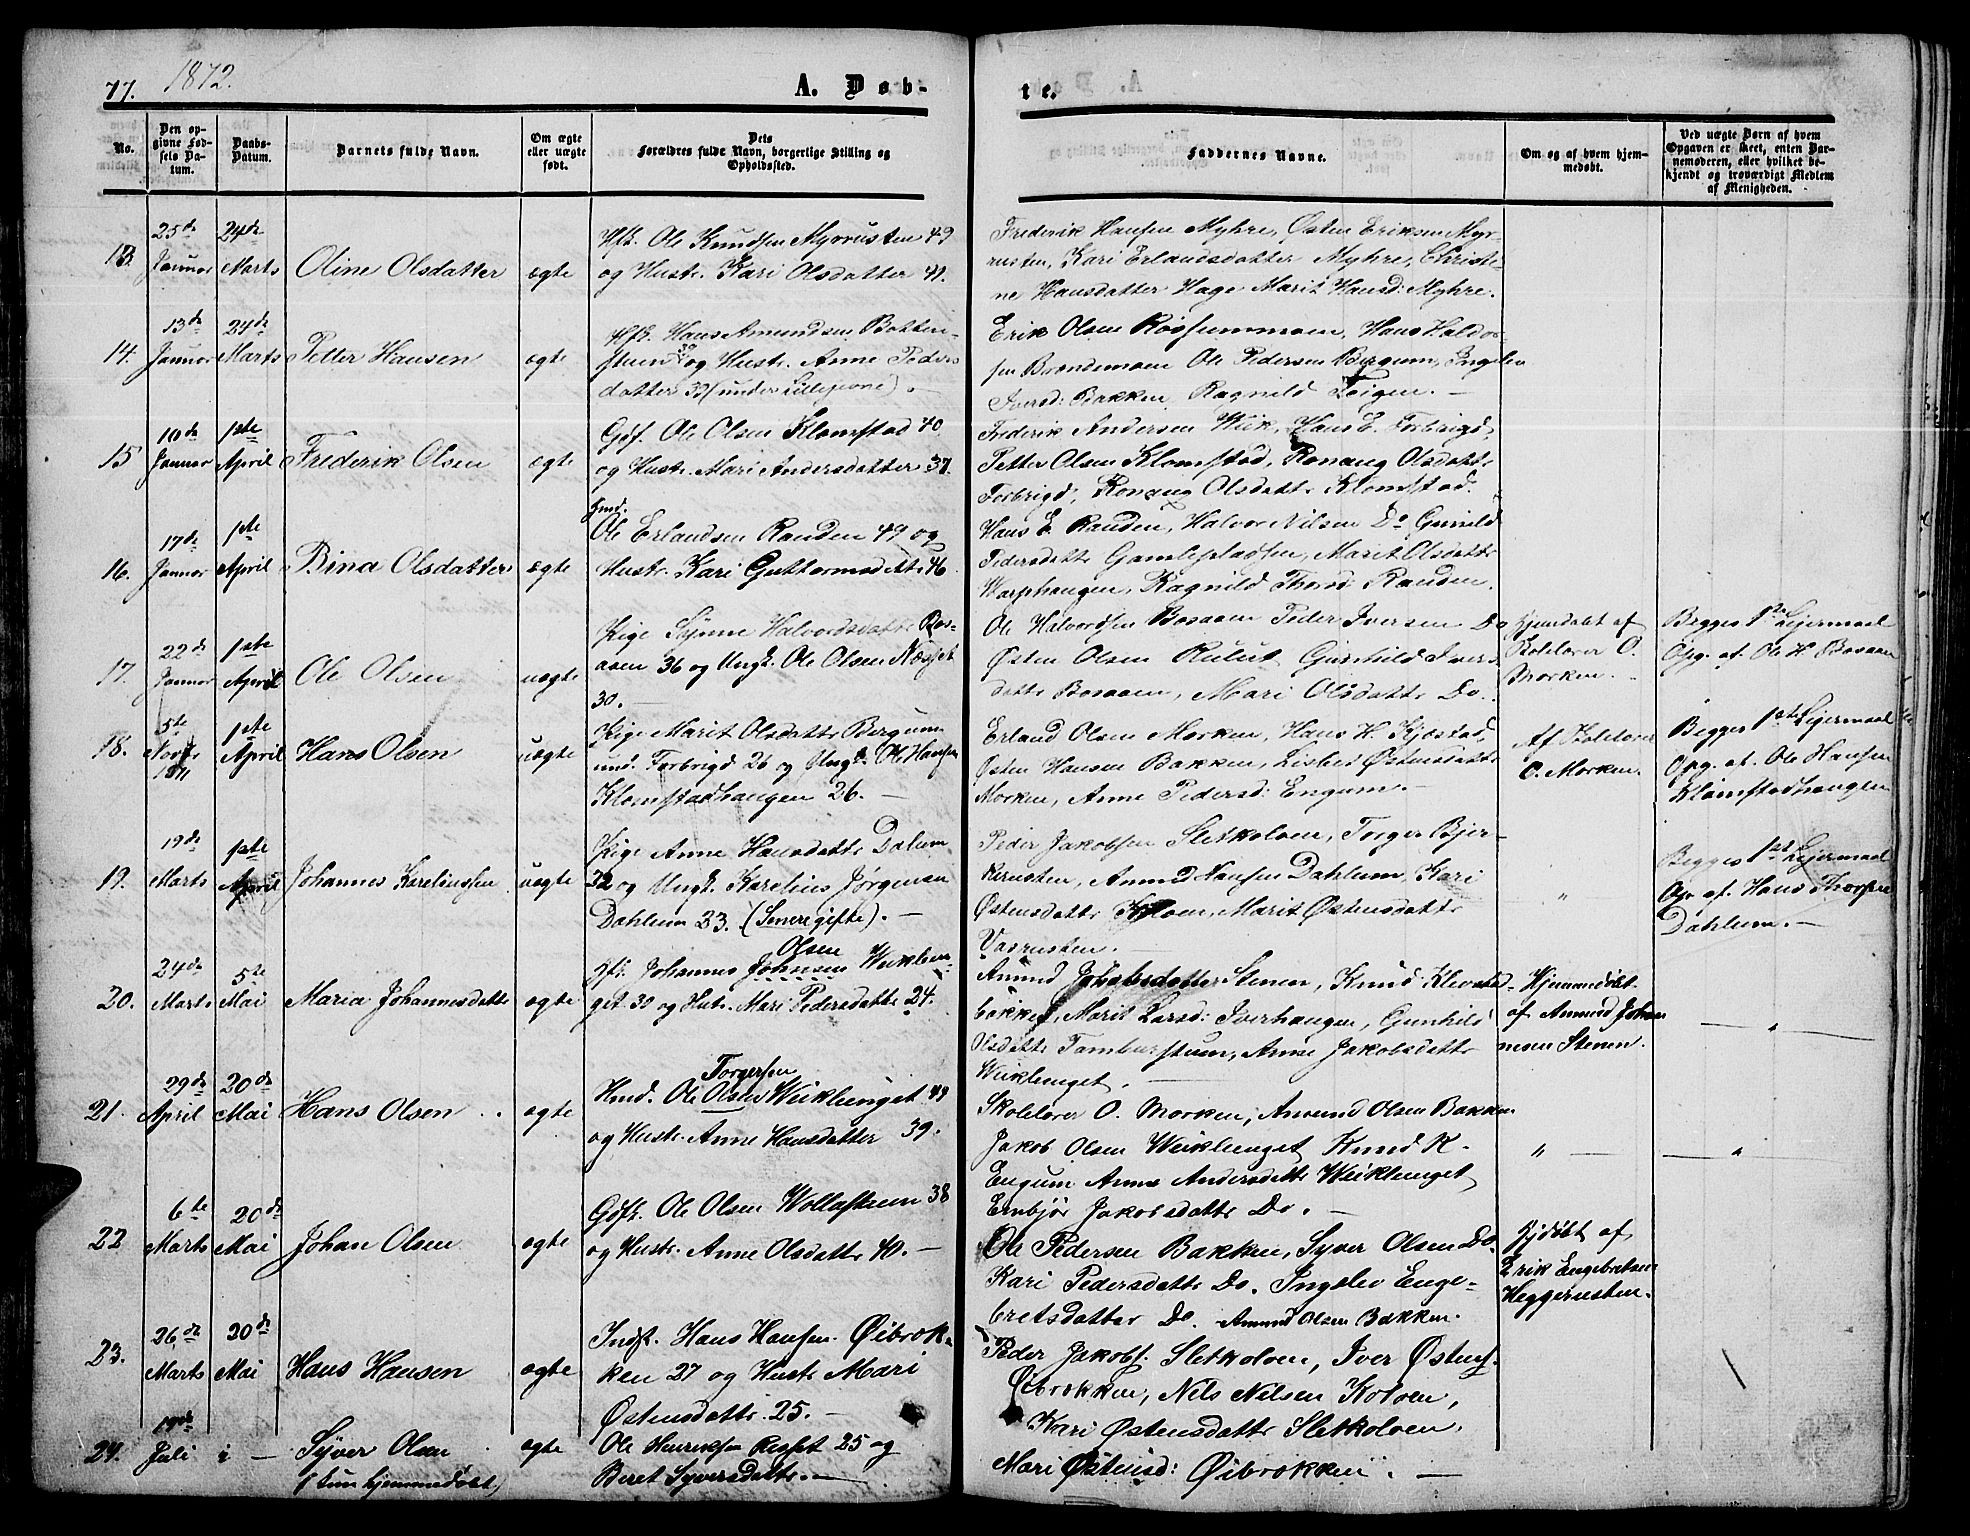 77. 1872. A. Døb-
te.
No.
Den op-
givne Fød-
sels Da-
tum.
Daabs-
Datum.
Barnets fulde Navn.
Om ægte
eller uægte
født.
Dets
Forældres fulde Navn, borgerlige Stilling og
Opholdssted.
Faddernes Navne.
Om og af hvem hjem-
medøbt.
Ved uægte Børn af hvem
Opgaven er skeet, enten Bar-
nemoderen, eller hvilket be-
kjendt og troværdigt Medlem
af Menigheden.
13. 25de Januar 24de Marts Oline Olsdatter ægte
Hfk. Ole Knudsen Myrrusten 49
og Hustr. Kari Olsdatter 41.
Frederik Hansen Myhre, Østen Eriksen Myr-
rusten, Kari Erlandsdatter Myhre, Christi-
ne Hansdatter Hage Marit Hansd: Myhre.
14. 13de Januar 24de Marts Petter Hansen ægte
Hfk. Hans Amundsen Botteri-
stuen 39 og Hustr. Anne Peders
datter 33 (under Lillejevne).
Erik Olsen Røssummoen, Hans Haldor
sen Brændemoen Ole Pedersen Bergum, Ingelev
Iversd: Bakken Ragnild Teigen. —
15 10de Januar 1ste April Frederik Olsen ægte
Gdf. Ole Olsen Klomstad 40
og Hustr. Mari Andersdatter 37.
Frederik Andersen Wiik, Hans E. Forbrigd,
Petter Olsen Klomstad, Ronaug Olsdattr
Forbrigd, Ronaug Olsdattr Klomstad.
16. 17de Januar 1ste April Bina Olsdatter ægte
Hmd.
Ole Erlandsen Randen 49 og
Hustr. Kari Guttormsdattr 46
Hans E. Randen, Halvor Nilsen Do Gunild
Pedersdattr Gamlepladsen, Marit Olsdattr
Warphaugen, Ragnild Thord: Randen.
17. 22de Januar 1ste April Ole Olsen uægte
Pige Synne Halvordsdattr Bos-
aaen 36 og Ungk. Ole Olsen Næsset
30. —
Ole Halvordsen Bosaaen Peder Iversen Do
Østen Olsen Rulut Gunhild Ivers
dattr Bosaaen, Mari Olsdattr Do.
Hjemdøbt af
Skolelærer O.
Morken.
Begges 1ste Lejermaal
Opg. af Ole H. Bosaaen
18. 5te Novbr 1871 1ste April Hans Olsen uægte
Pige Marit Olsdattr Bergum
und. Forbrigd 26 og Ungk. Ole Hansen
Klomstadhaugen 26. —
Erland Olsen Morken, Hans H. Kjøstad,
Østen Hansen Bakken, Lisbed Østensdattr
Morken, Anne Pedersd: Engum. —
Af Skolelærer
O. Morken.
Begges 1ste Lejermaal
Opg. af Ole Hansen
Klomstadhaugen
19. 19de Marts 1ste April Johannes Karelinssen uægte
Pige Anne Hansdattr Dalum
32 og Ungk. Karelius Jørgensen
Dahlum 23. (Senere gifte). —
Peder Jakobsen Sletkolven, Torger Bjer-
kerusten, Amund Hansen Dahlum, Kari
Østensdattr Kolven, Marit Østensdattr
Vasrusten. —
"
Begges 1ste Lejermaal
Opg. af Hans Thorsen
Dahlum. —
20. 24de Marts 5te Mai Maria Johannesdattr ægte
Olsen
Hfk. Johannes Johnsen Wiiklien-
get 30 og Hustr. Mari Pedersdattr 24.
Amund Stenen, Knud Klevstad-
bakken, Marit Larsd: Iverhaugen, Gunhild
Olsdattr Tamburstuen, Anne Jakobsdattr
Wiiklenget. —
Hjemmedøbt
af Amund Johan
nesen Stenen.
— " —
21. 29de April 20de Mai Hans Olsen ægte
Torgersen
Hmd. Ole Olsen Wiiklenget 49
og Hustr. Anne Hansdatter 39.
Skolelærer O. Morken, Amund Olsen Bakken
Jakob Olsen Weiklenget Knud K.
Engum Anne Andersdattr Weiklenget
Embjør Jakobsdattr Do. —
" —
— " —
22 6te Marts 20de Mai Johan Olsen ægte
Gdfk. Ole Olsen Wollastuen 38
og Hustr. Anne Olsdattr 40. —
Ole Pedersen Bakken, Syver Olsen Do.
Kari Pedersdattr Do. Ingelev Enge-
bretsdatter Do. Amund Olsen Bakken.
Hjdøbt af
Erik Engebretsen
Heggerusten.
23. 26de Marts 20de Mai Hans Hansen ægte
Indst. Hans Hansen Øibrok-
ken 27 og Hustr Mari
Østensdattr 25. —
Peder Jakobs. Sletkolven, Iver Østens.
Øibrokken, Nels Nilsen Kolven,
Kari Østensdattr Sletkolven,
Mari Østensd: Øibrokken. —
24. 19de Juli i — Syver Olsen ægte
(kun hjemmedøbt)
Ole Henriksen Risset 25 og
Beret Syversdattr. —